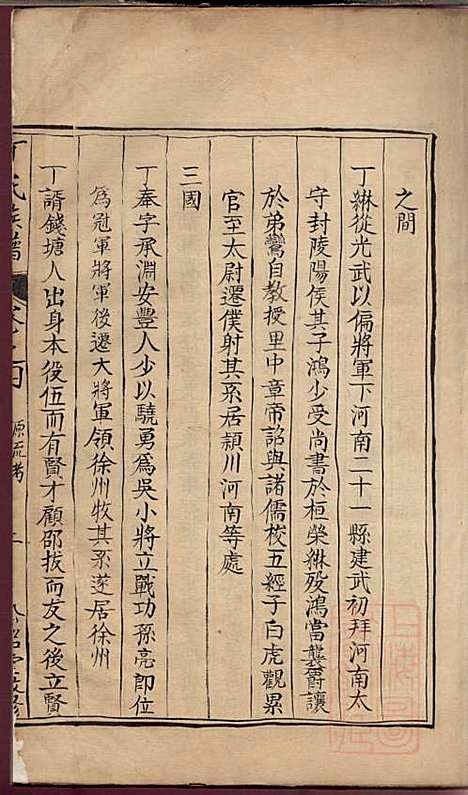 之間
丁綝從光武以偏將軍下河南二十一縣建武初拜河南太
守封陵陽侯其子鴻少受尚書於桓榮綝歿鴻當襲爵讓
於弟鸞自教授里中章帝詔與諸儒校五經子白虎觀累
官至太尉遷僕射其系居頴川河南等處
三國
丁奉字承淵安豐人少以驍勇爲吳小將立戰功孫亮即位
爲冠軍將軍後遷大將軍領徐州牧其系遂居徐州
丁諝錢塘人出身本役伍而有賢才顧邵拔而友之後立賢
丁氏族譜 源流考